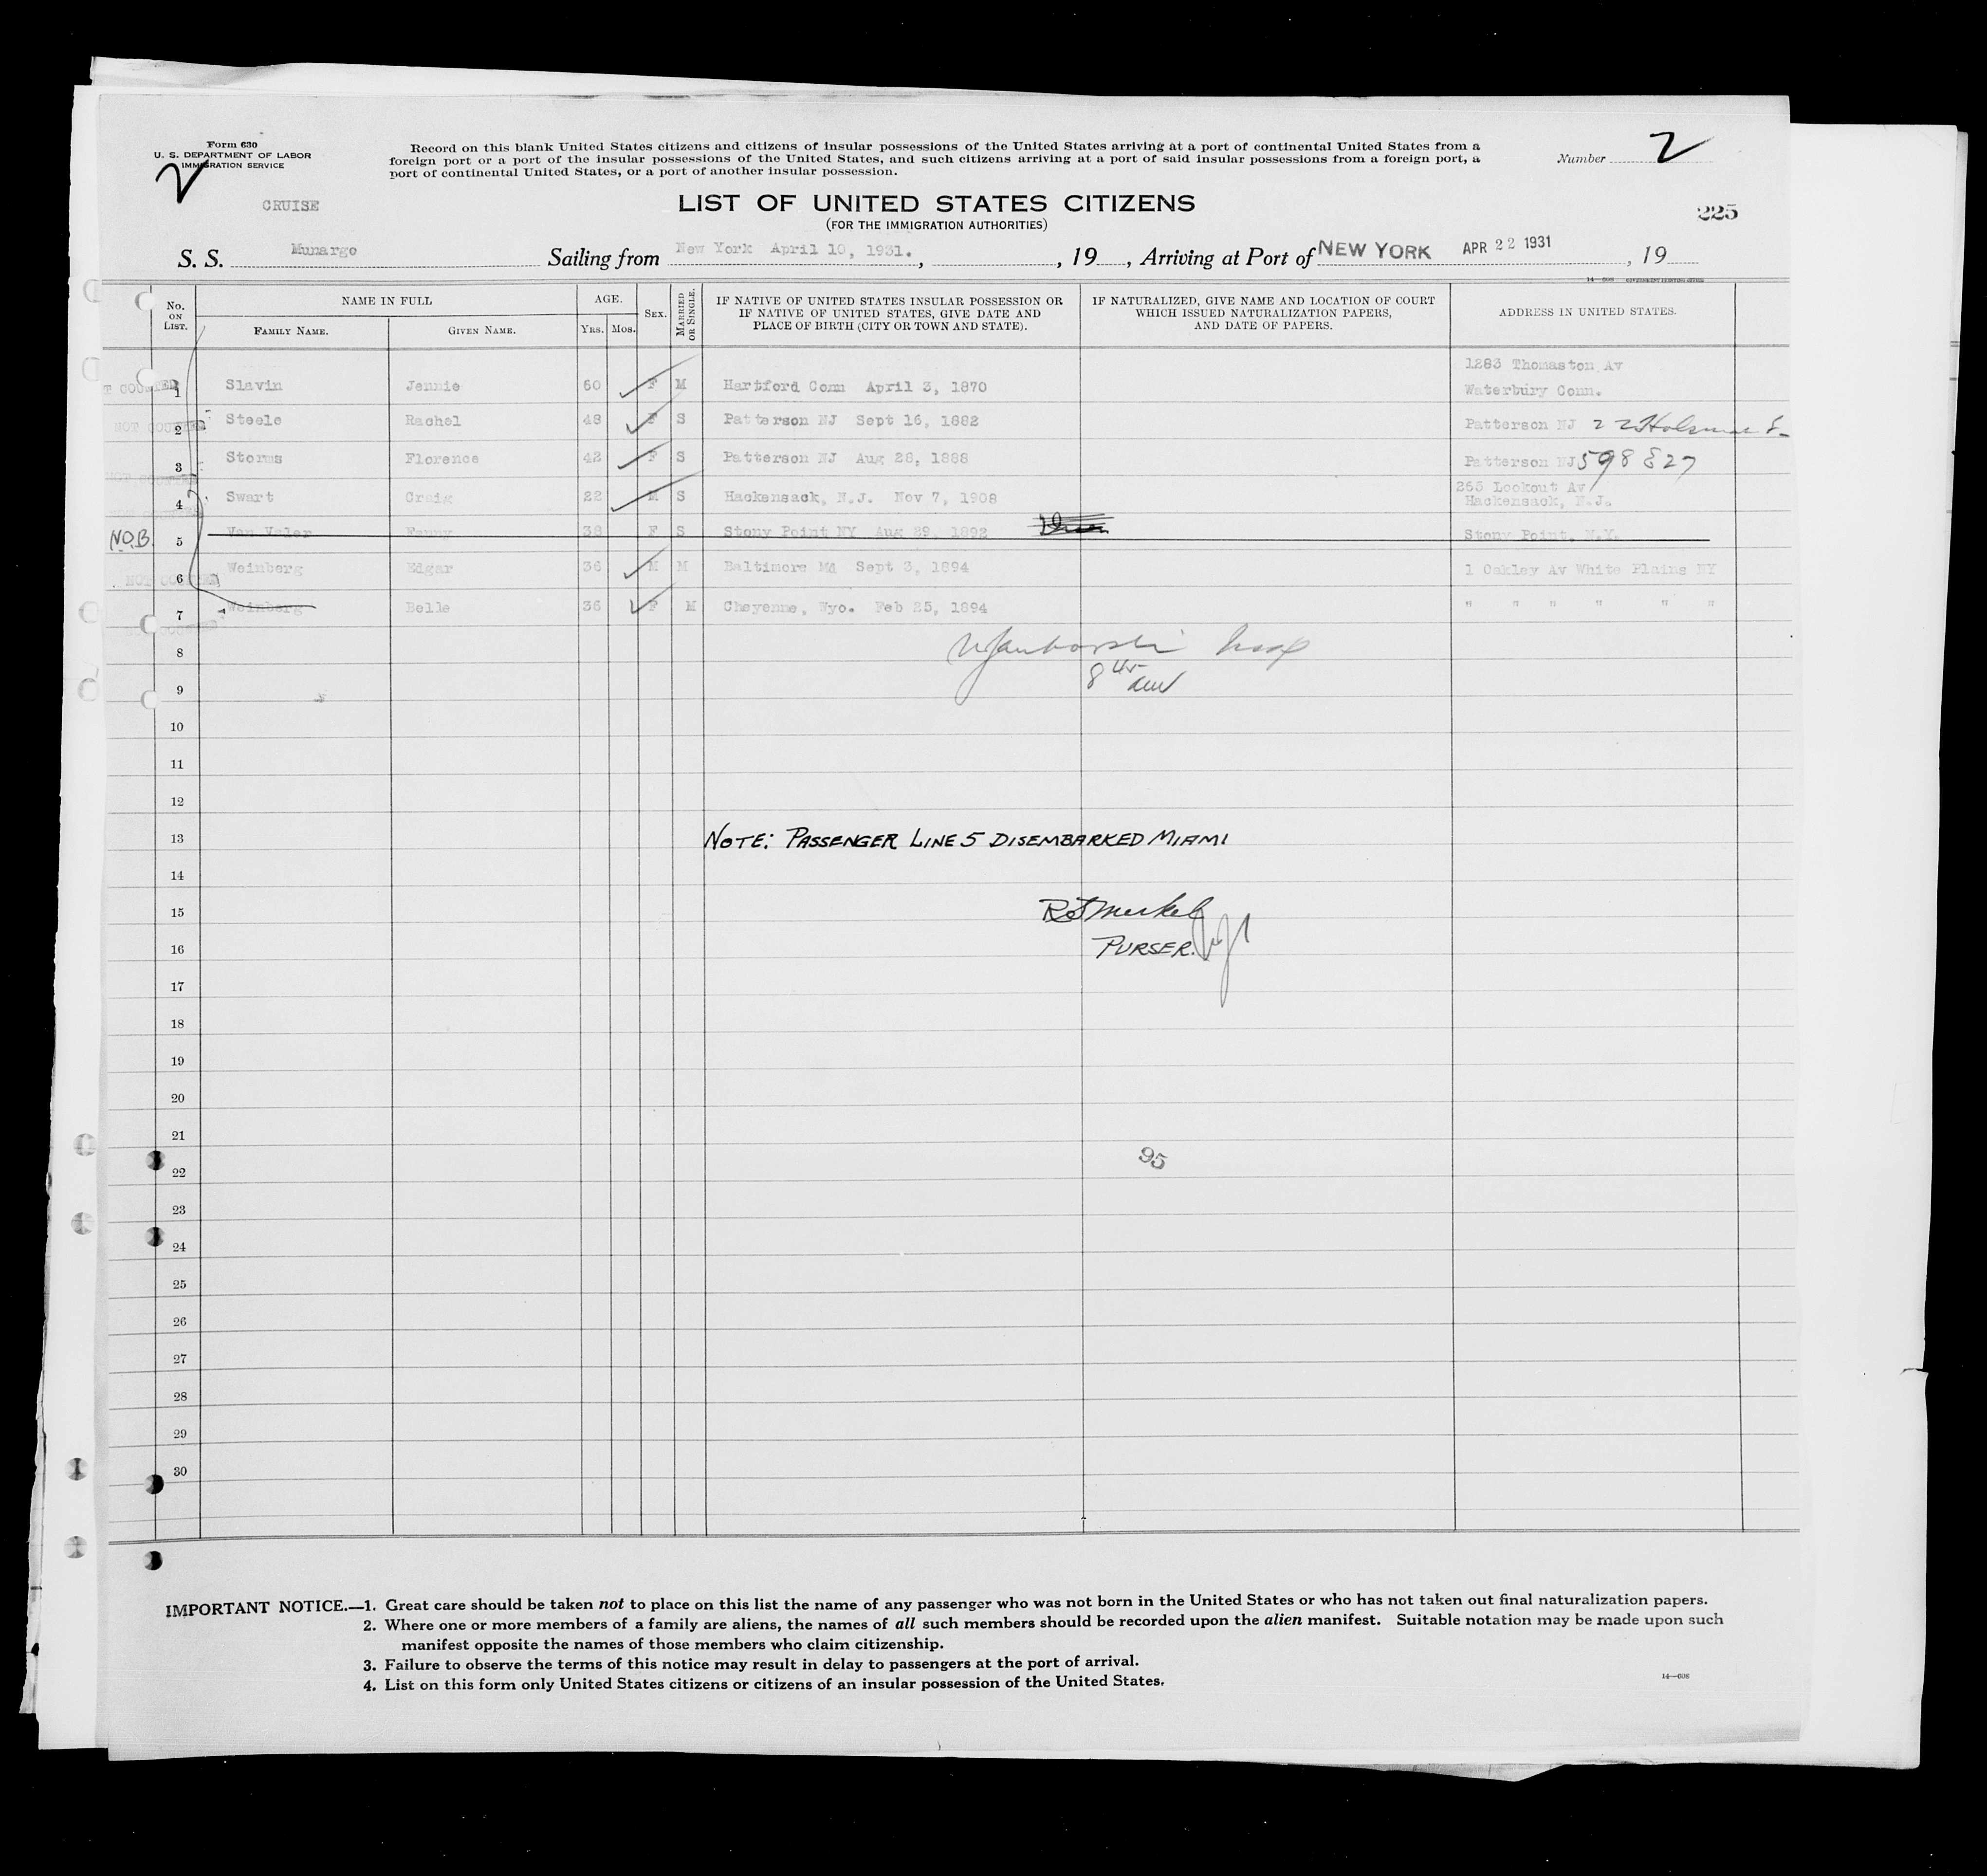 Form 630
U. S. DEPARTMENT OF LABOR
IMMIGRATION SERVICE
Record on this blank United States citizens and citizens of insular possessions of the United States arriving at a port of continental United States from a
foreign port or a port of the insular possessions of the United States, and such citizens arriving at a port of said insular possessions from a foreign port, a
port of continental United States, or a port of another insular possession.
Number 2
2
CRUISE
LIST OF UNITED STATES CITIZENS
(FOR THE IMMIGRATION AUTHORITIES)
225
S. S. Munargo Sailing from New York April 10, 1931. , , 19 , Arriving at Port of NEW YORK APR 22 1931 , 19
No. ON LIST. NAME IN FULL FAMILY NAME. GIVEN NAME. AGE. YRS. MOS. SEX. MARRIED OR SINGLE. IF NATIVE OF UNITED STATES INSULAR POSSESSION OR IF NATIVE OF UNITED STATES, GIVE DATE AND PLACE OF BIRTH (CITY OR TOWN AND STATE). IF NATURALIZED, GIVE NAME AND LOCATION OF COURT WHICH ISSUED NATURALIZATION PAPERS, AND DATE OF PAPERS. ADDRESS IN UNITED STATES.
1283 Thomaston Av
1 Slavin Jennie 60 F M Hartford Conn April 3, 1870 Waterbury Conn.
NOT COUNTED 2 Steele Rachel 48 F S Patterson NJ Sept 16, 1882 Patterson NJ 22
3 Storms Florence 42 F S Patterson NJ Aug 28, 1888 Patterson NJ 598 827
265 Lookout Av
4 Swart Craig 22 M S Hackensack, N.J. Nov 7, 1908 Hackensack, N.J.
N.O.B. 5 Van Valer Fanny 38 F S Stony Point NY Aug 29, 1892 Stony Point, N.Y.
NOT COUNTED 6 Weinberg Edgar 36 M M Baltimore Md Sept 3, 1894 1 Oakley Av White Plains NY
7 Weinberg Belle 36 F M Cheyenne, Wyo. Feb 25, 1894 " " " " " "
8
9
10
11
12
13 NOTE: PASSENGER LINE 5 DISEMBARKED MIAMI
14
15 Merkel
16 PURSER.
17
18
19
20
21
95
22
23
24
25
26
27
28
29
30
IMPORTANT NOTICE.—1. Great care should be taken not to place on this list the name of any passenger who was not born in the United States or who has not taken out final naturalization papers.
2. Where one or more members of a family are aliens, the names of all such members should be recorded upon the alien manifest. Suitable notation may be made upon such
manifest opposite the names of those members who claim citizenship.
3. Failure to observe the terms of this notice may result in delay to passengers at the port of arrival.
4. List on this form only United States citizens or citizens of an insular possession of the United States.
14—608